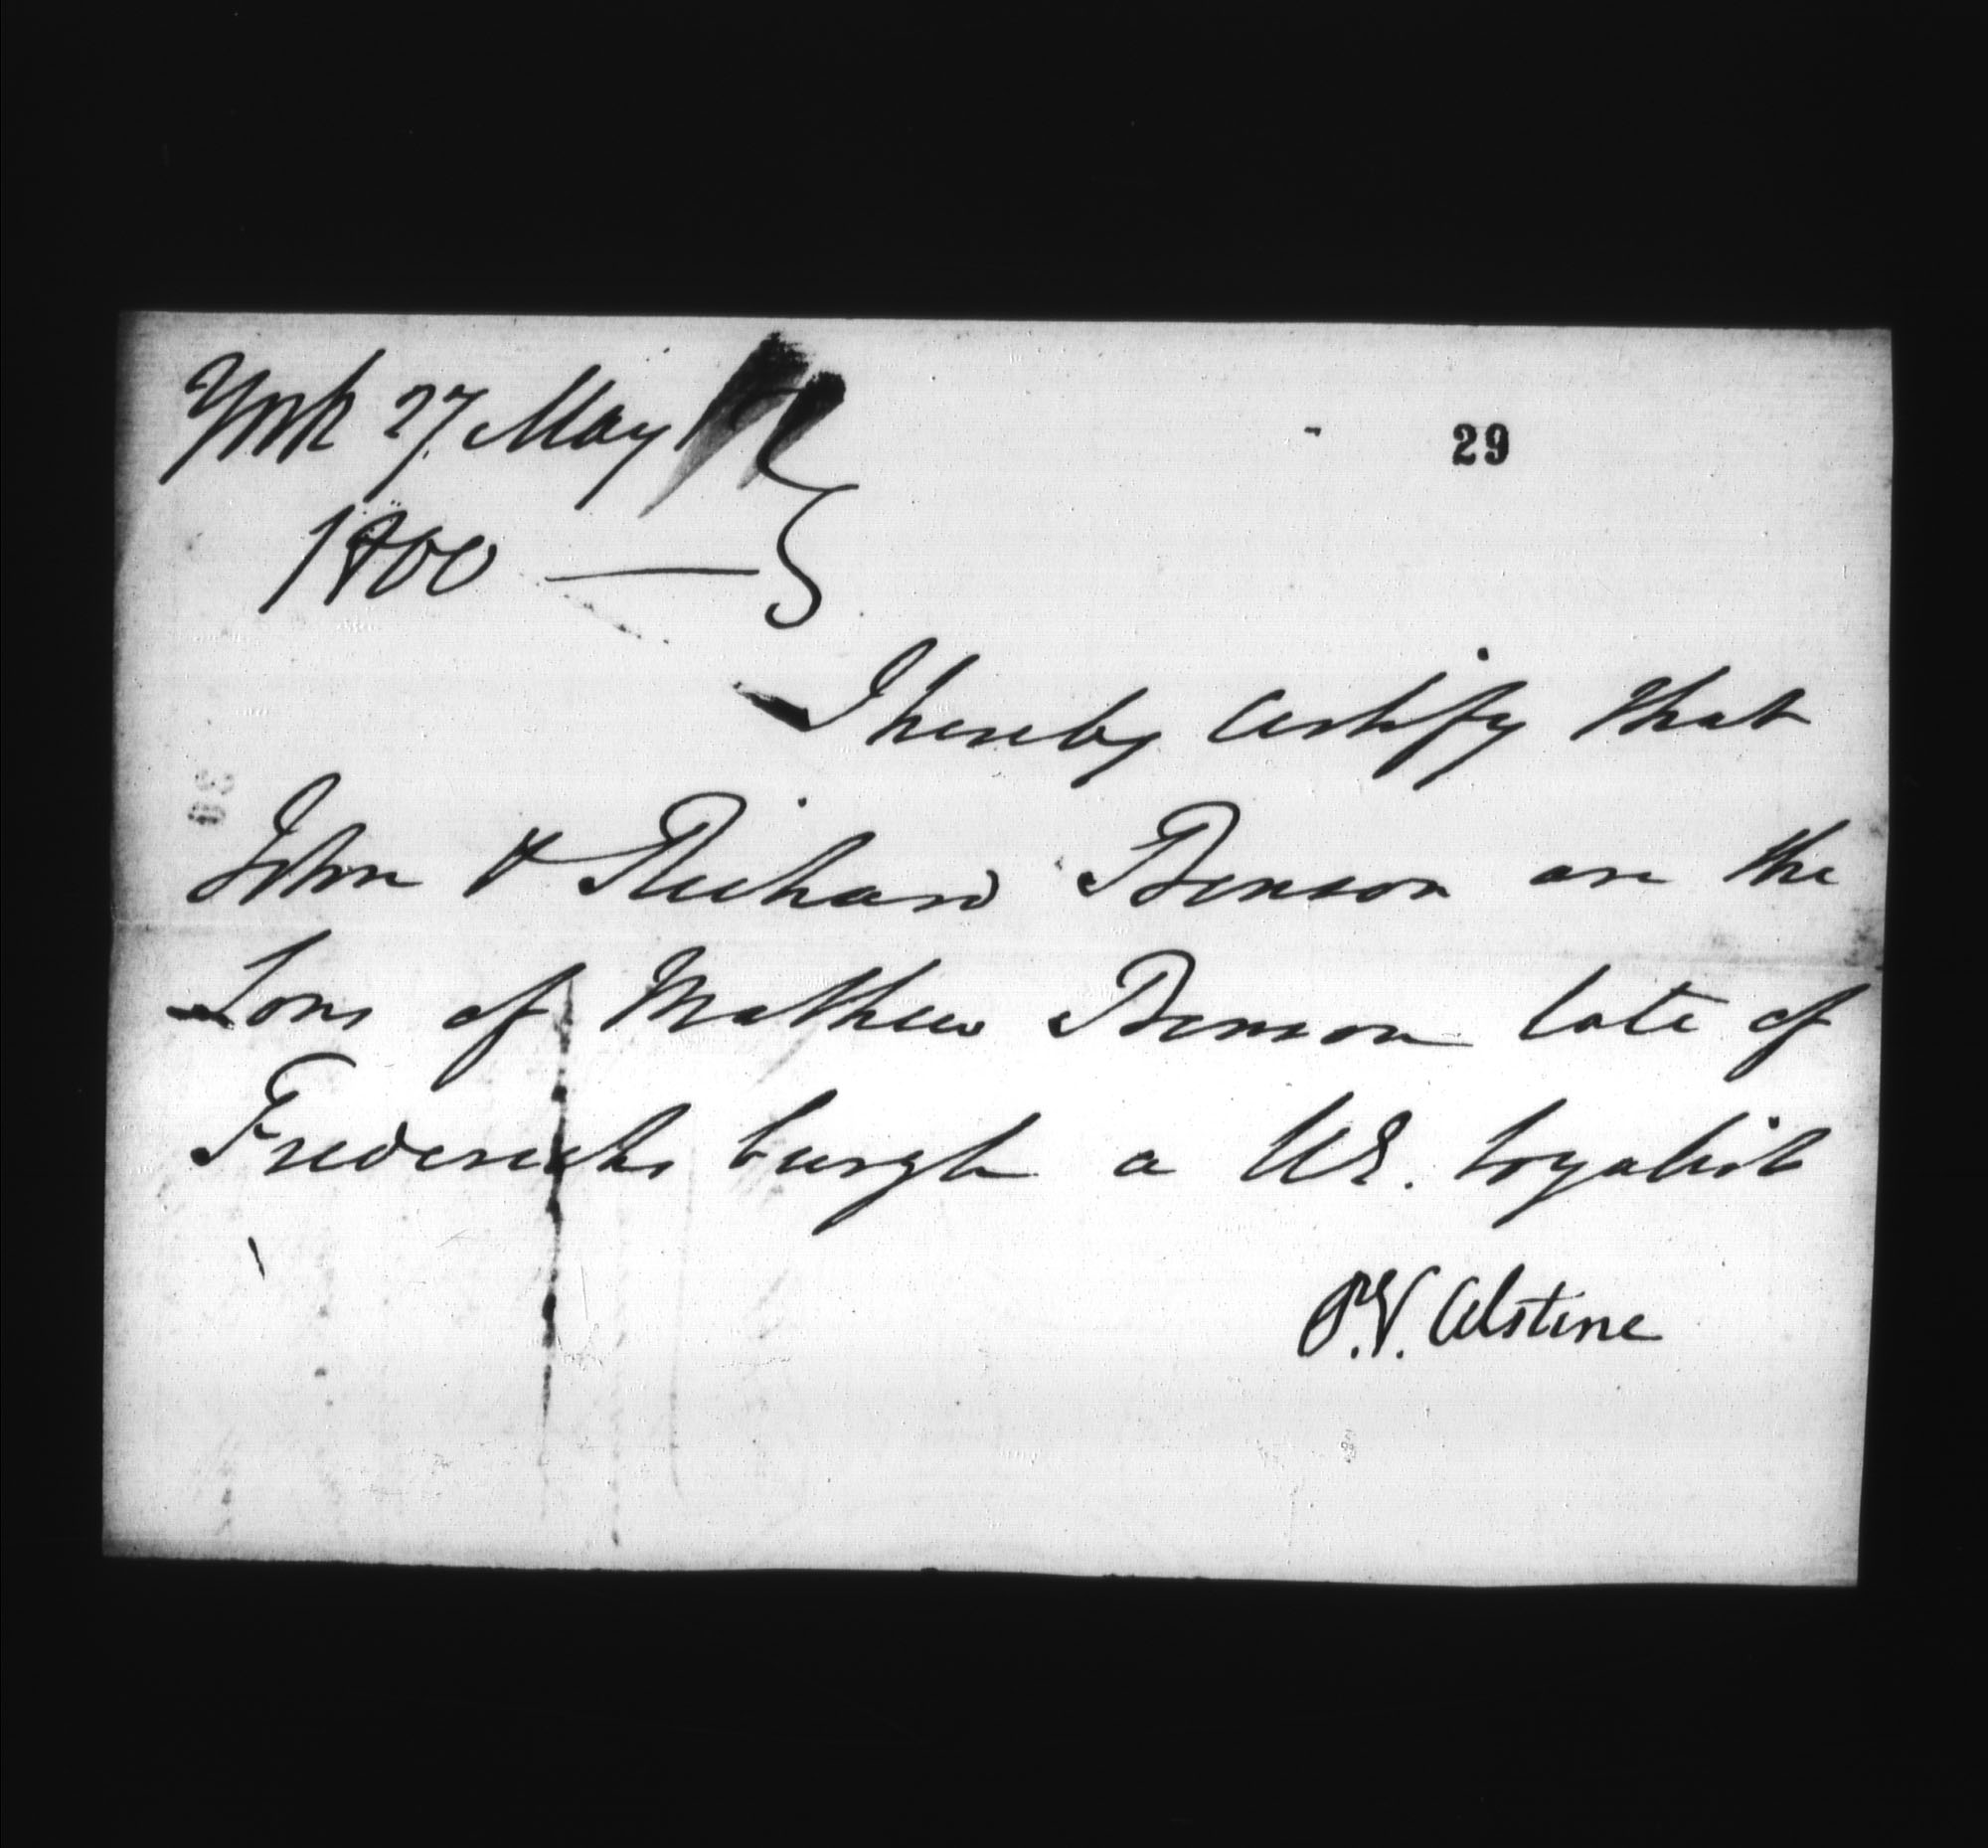 York 27. May
29
1800
I hereby Certify that
John & Richard Benson are the
Sons of Mathew Benson late of
Fredericks burgh a UE. Loyalist
P.V. Alstine
30